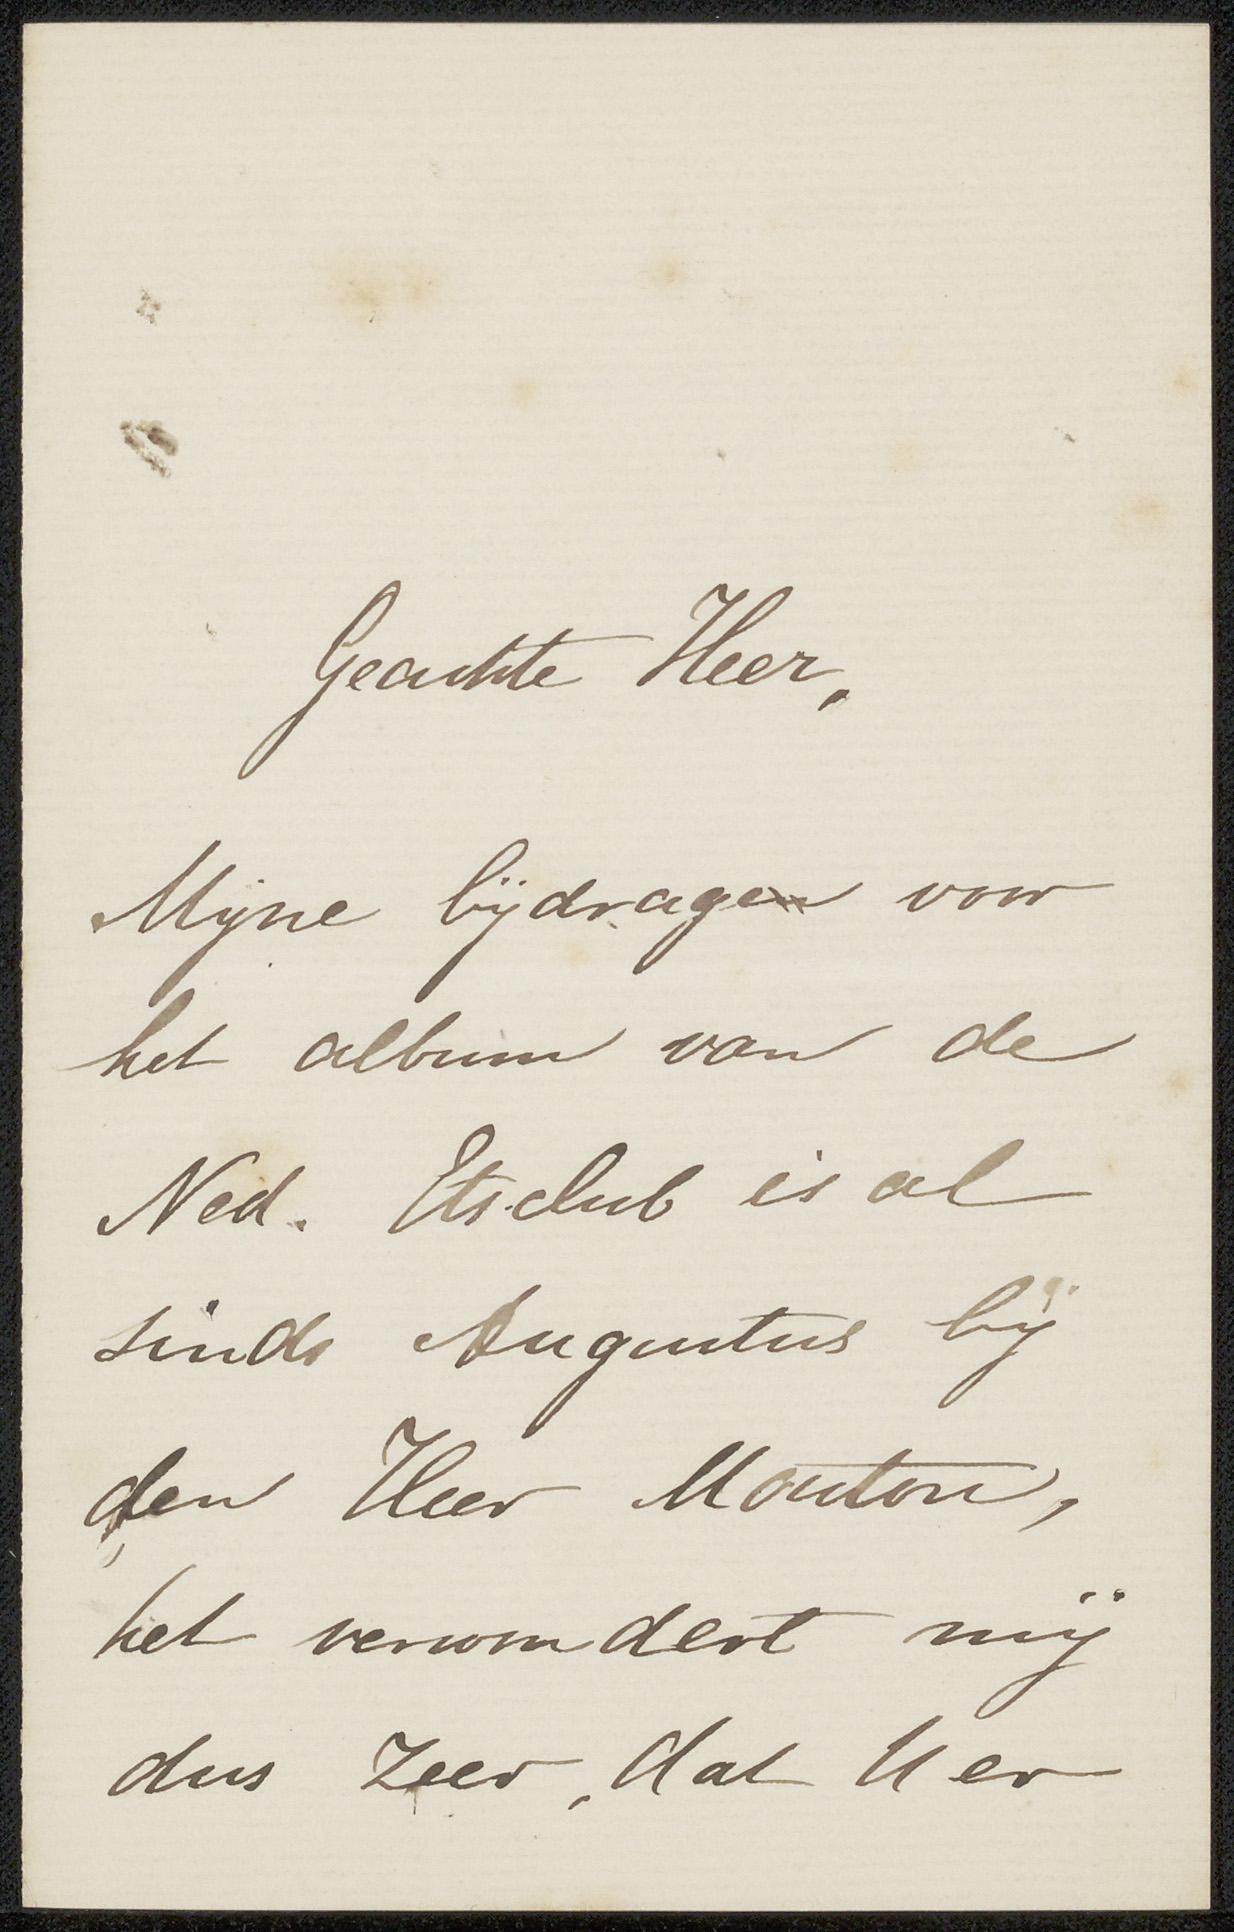 Geachte Heer,
Mijne bijdrage voor
het album van de
Ned. Etsclub is al
sinds Augustus bij
den Heer Mouton,
het verwondert mij
dus zeer, dat U er